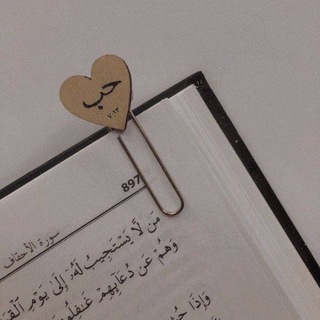 حب
897
سورة الأحقاف
مَن لَّا يَسْتَجِيبُ لَهُۥٓ إِلَىٰ يَوْمِ
وَهُمْ عَن دُعَآئِهِمْ غَٰفِلُونَ
وَإِذَا